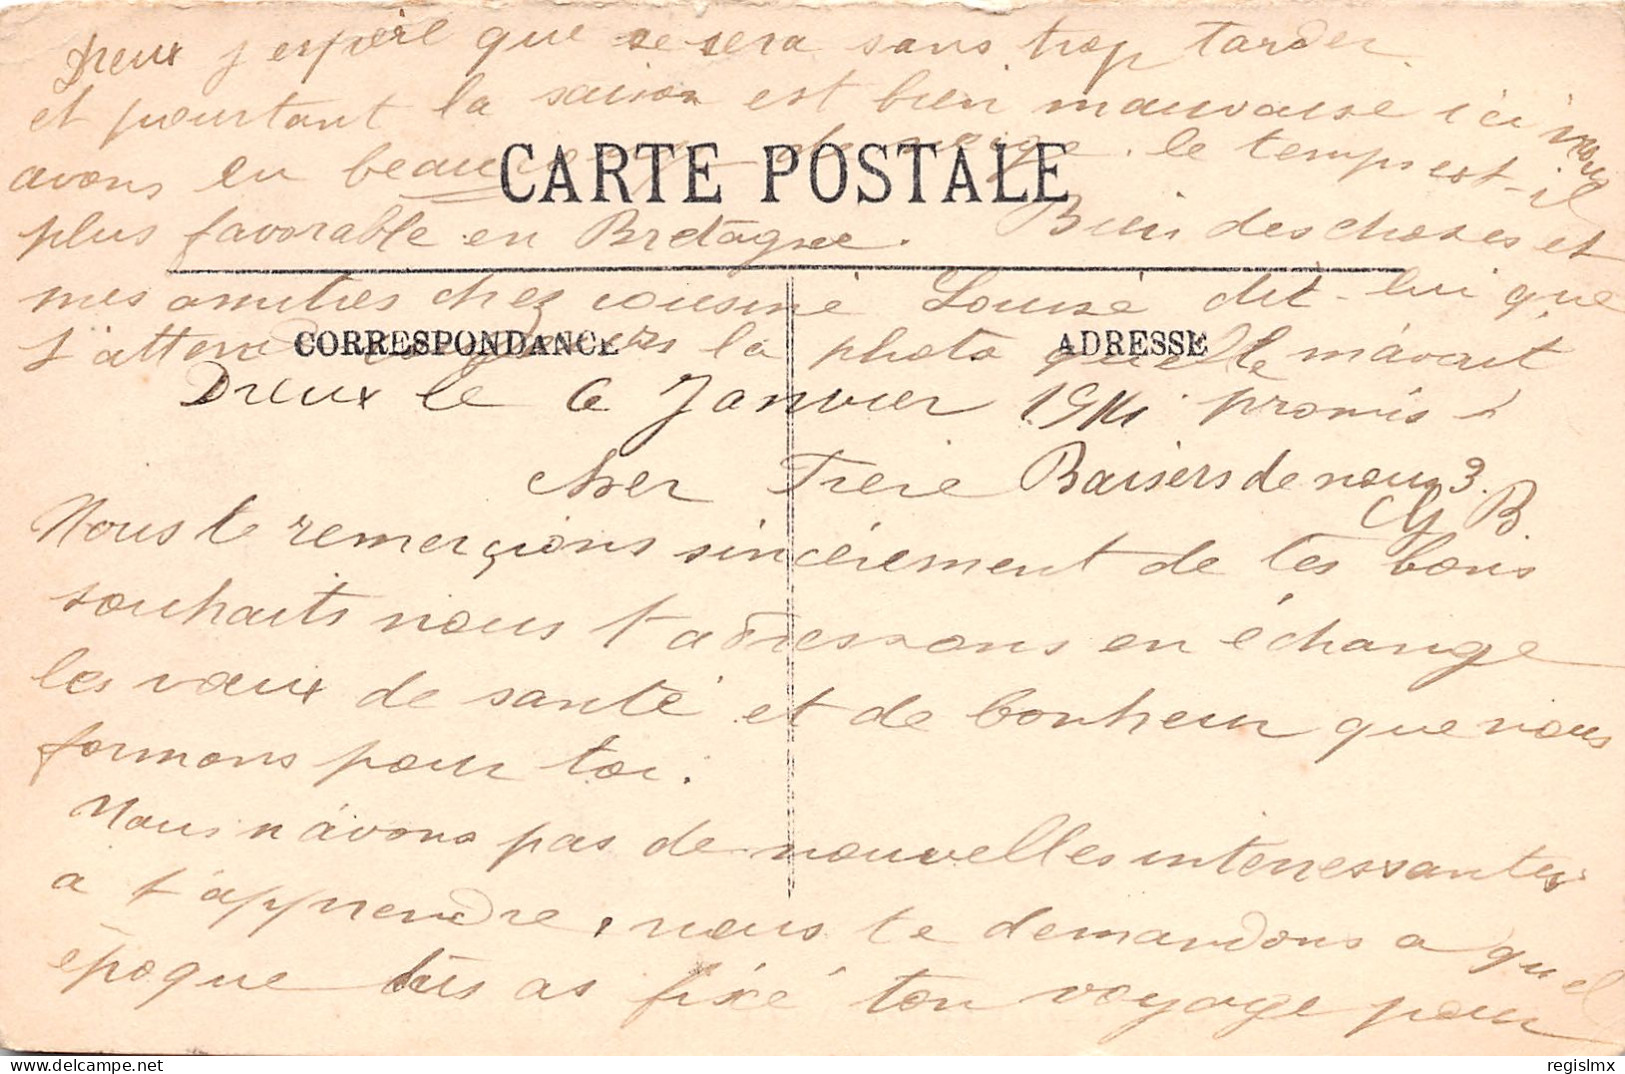 Dreux j espère que se sera sans trop tarder.
et pourtant la saison est bien mauvaise ici nous
avons eu beaucoup de neige. le temps est-il
CARTE POSTALE
plus favorable en Bretagne. Bien des choses et
mes amitiés chez cousine Louise dit-lui que
j'attend toujours la photo qu'elle m'avait
CORRESPONDANCE
ADRESSE
Dreux le 6 Janvier 1911 promis
cher Frere Baisers de nous 3.
G B.
Nous te remerçions sincèrement de tes bons
souhaits nous t adressons en échange
les vœux de santé et de bonheur que nous
formons pour toi.
Nous n'avons pas de nouvelles interressantes
a t'apprendre, nous te demandons a quel
époque tu as fixé ton voyage pour
regislmx